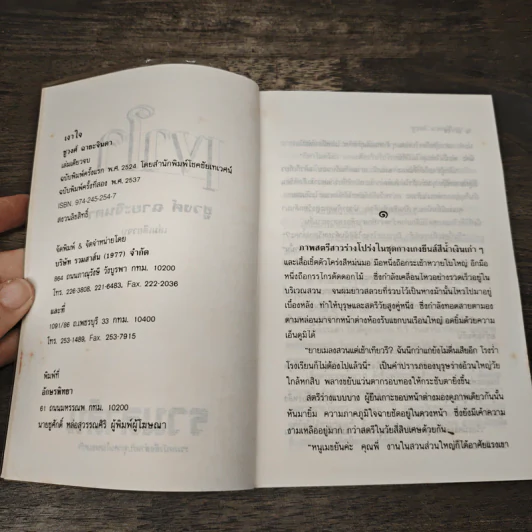 เงาใจ
ชูวงศ์ ฉายะจินดา
เล่มเดียวจบ
ฉบับพิมพ์ครั้งแรก พ.ศ. 2524 โดยสำนักพิมพ์โชคชัยเทเวศน์
ฉบับพิมพ์ครั้งที่สอง พ.ศ. 2537
ISBN. 974-245-254-7
สงวนลิขสิทธิ์
จัดพิมพ์ & จัดจำหน่ายโดย
บริษัท รวมสาส์น (1977) จำกัด
864 ถนนภาณุรังษี วังบูรพา กทม. 10200
โทร. 226-3808, 221-6483, Fax. 222-2036
และที่
1091/86 ถ.เพชรบุรี 33 กทม. 10400
โทร. 253-1489, Fax. 253-7915
พิมพ์ที่
อักษรพิทยา
61 ถนนมหรรณพ กทม. 10200
นายชูศักดิ์ หล่อสุวรรณศิริ ผู้พิมพ์ผู้โฆษณา
๑
ภาพสตรีสาวร่างโปร่งในชุดกางเกงยีนส์สีน้ำเงินเก่า ๆ
และเสื้อเชิ้ตคิวโครงสีหม่นมอ มือหนึ่งถือกระเป๋าหวายใบใหญ่ อีกมือ
หนึ่งถือกรรไกรตัดดอกไม้ ซึ่งกำลังเคลื่อนไหวอย่างรวดเร็วอยู่ใน
บริเวณสวน จนผมยาวสลวยที่รวบเป็นหางม้านั้นไหวไปมาอยู่
เบื้องหลัง ทำให้บุรุษและสตรีวัยสูงคู่หนึ่ง ซึ่งกำลังทอดสายตามอง
ตามหล่อนมาจากหน้าต่างห้องรับแขกบนเรือนใหญ่ อดยิ้มด้วยความ
เอ็นดูมิได้
"ยายแมลงสวนแต่เช้าเทียวรึ? ฉันนึกว่าแกยังไม่ตื่นเสียอีก โรงร่ำ
โรงเรียนก็ไม่ต้องไปแล้วนี่" เป็นคำปรารภของบุรุษร่างอ้วนใหญ่วัย
ใกล้หกสิบ พลางขยับแว่นตากรอบทองให้กระชับตายิ่งขึ้น
สตรีร่างแบบบาง ผู้ยืนเกาะขอบหน้าต่างมองดูภาพเดียวกันนั้น
หันมายิ้ม ความภาคภูมิใจฉายชัดอยู่ในดวงหน้า ซึ่งยังมีเค้าความ
งามเหลืออยู่มาก กว่าสตรีในวัยสี่สิบเศษด้วยกัน
"หนูเมขยันค่ะ คุณพี่ งานในสวนส่วนใหญ่ก็ได้อาศัยแรงเขา